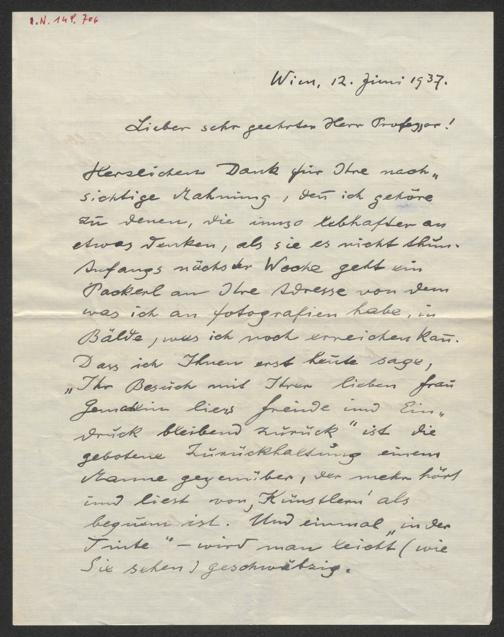 I.N. 149.706
Wien, 12. Juni 1937.
Lieber sehr geehrter Herr Professor!
Herzlichen Dank für Ihre nach„
sichtige Mahnung, deñ ich gehöre
zu denen, die umso lebhafter an
etwas denken, als sie es nicht thun.
Anfangs nächster Woche geht ein
Packerl an Ihre Adresse von dem
was ich an Fotografien habe, in
Bälde, was ich noch erreichen kañ.
Dass ich Ihnen erst heute sage,
„Ihr Besuch mit Ihrer lieben Frau
Gemahlin liess Freude und Ein„
druck bleibend zurück" ist die
gebotene Zurückhaltung einem
Manne gegenüber, der mehr hört
und liest von ‚Künstlern' als
bequem ist. Und einmal „in der
Tinte" – wird man leicht (wie
Sie sehen) geschwätzig.